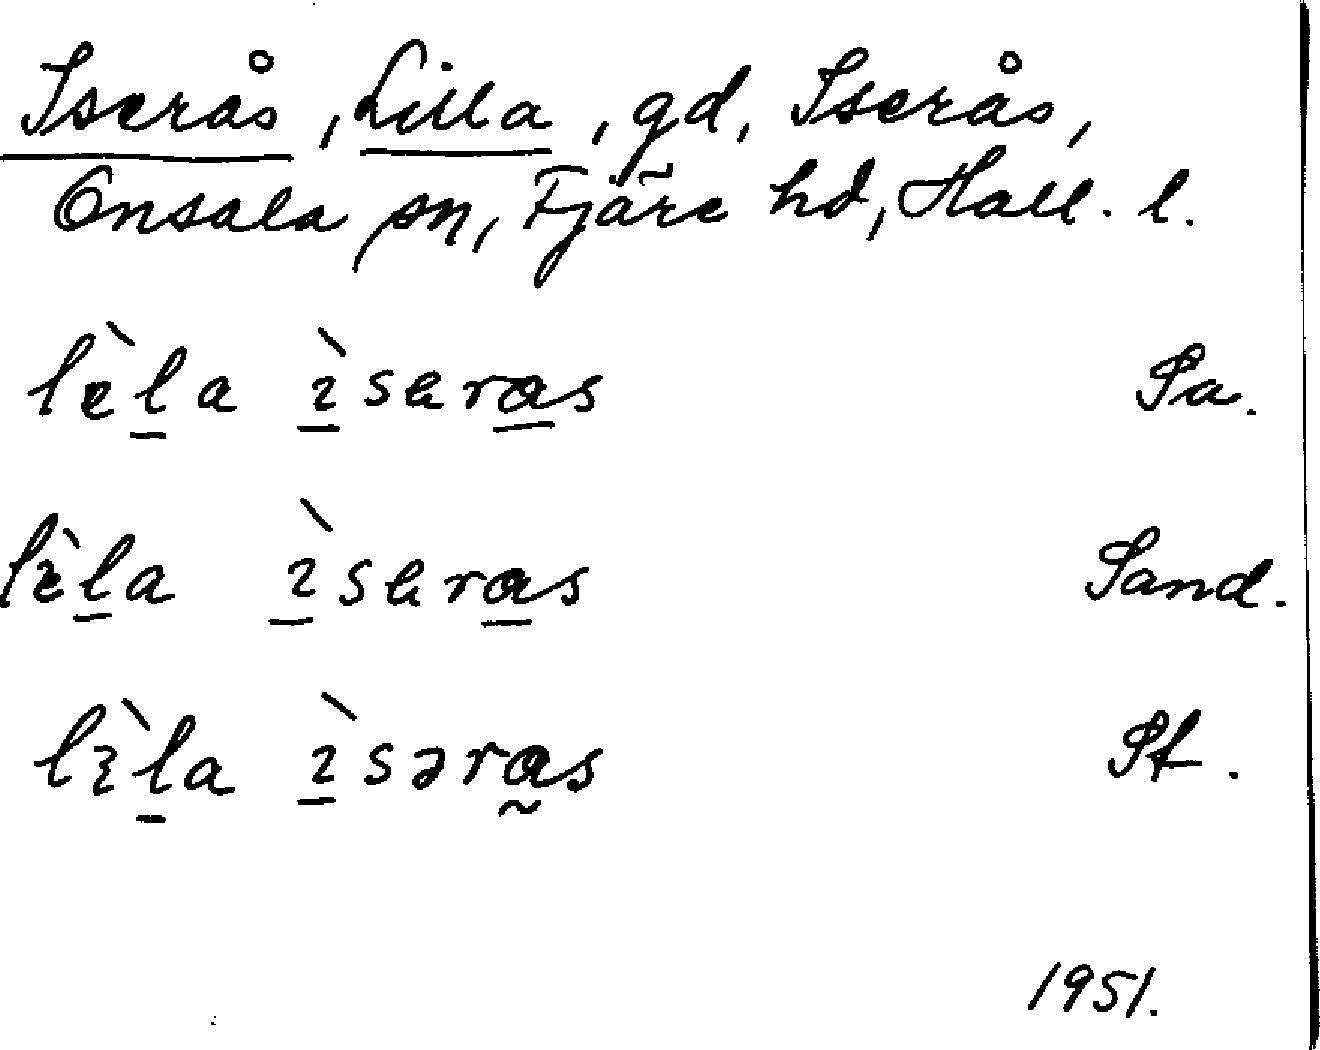 Iserås, Lilla, gd, Iserås,
Onsala sn, Fjäre hd, Hall. l.
lèl̲a ı̲̀sera̲s Sa.
lèl̲a ı̲̀sera̲s Sand.
lìl̲a ı̲̀səra̰s St.
1951.